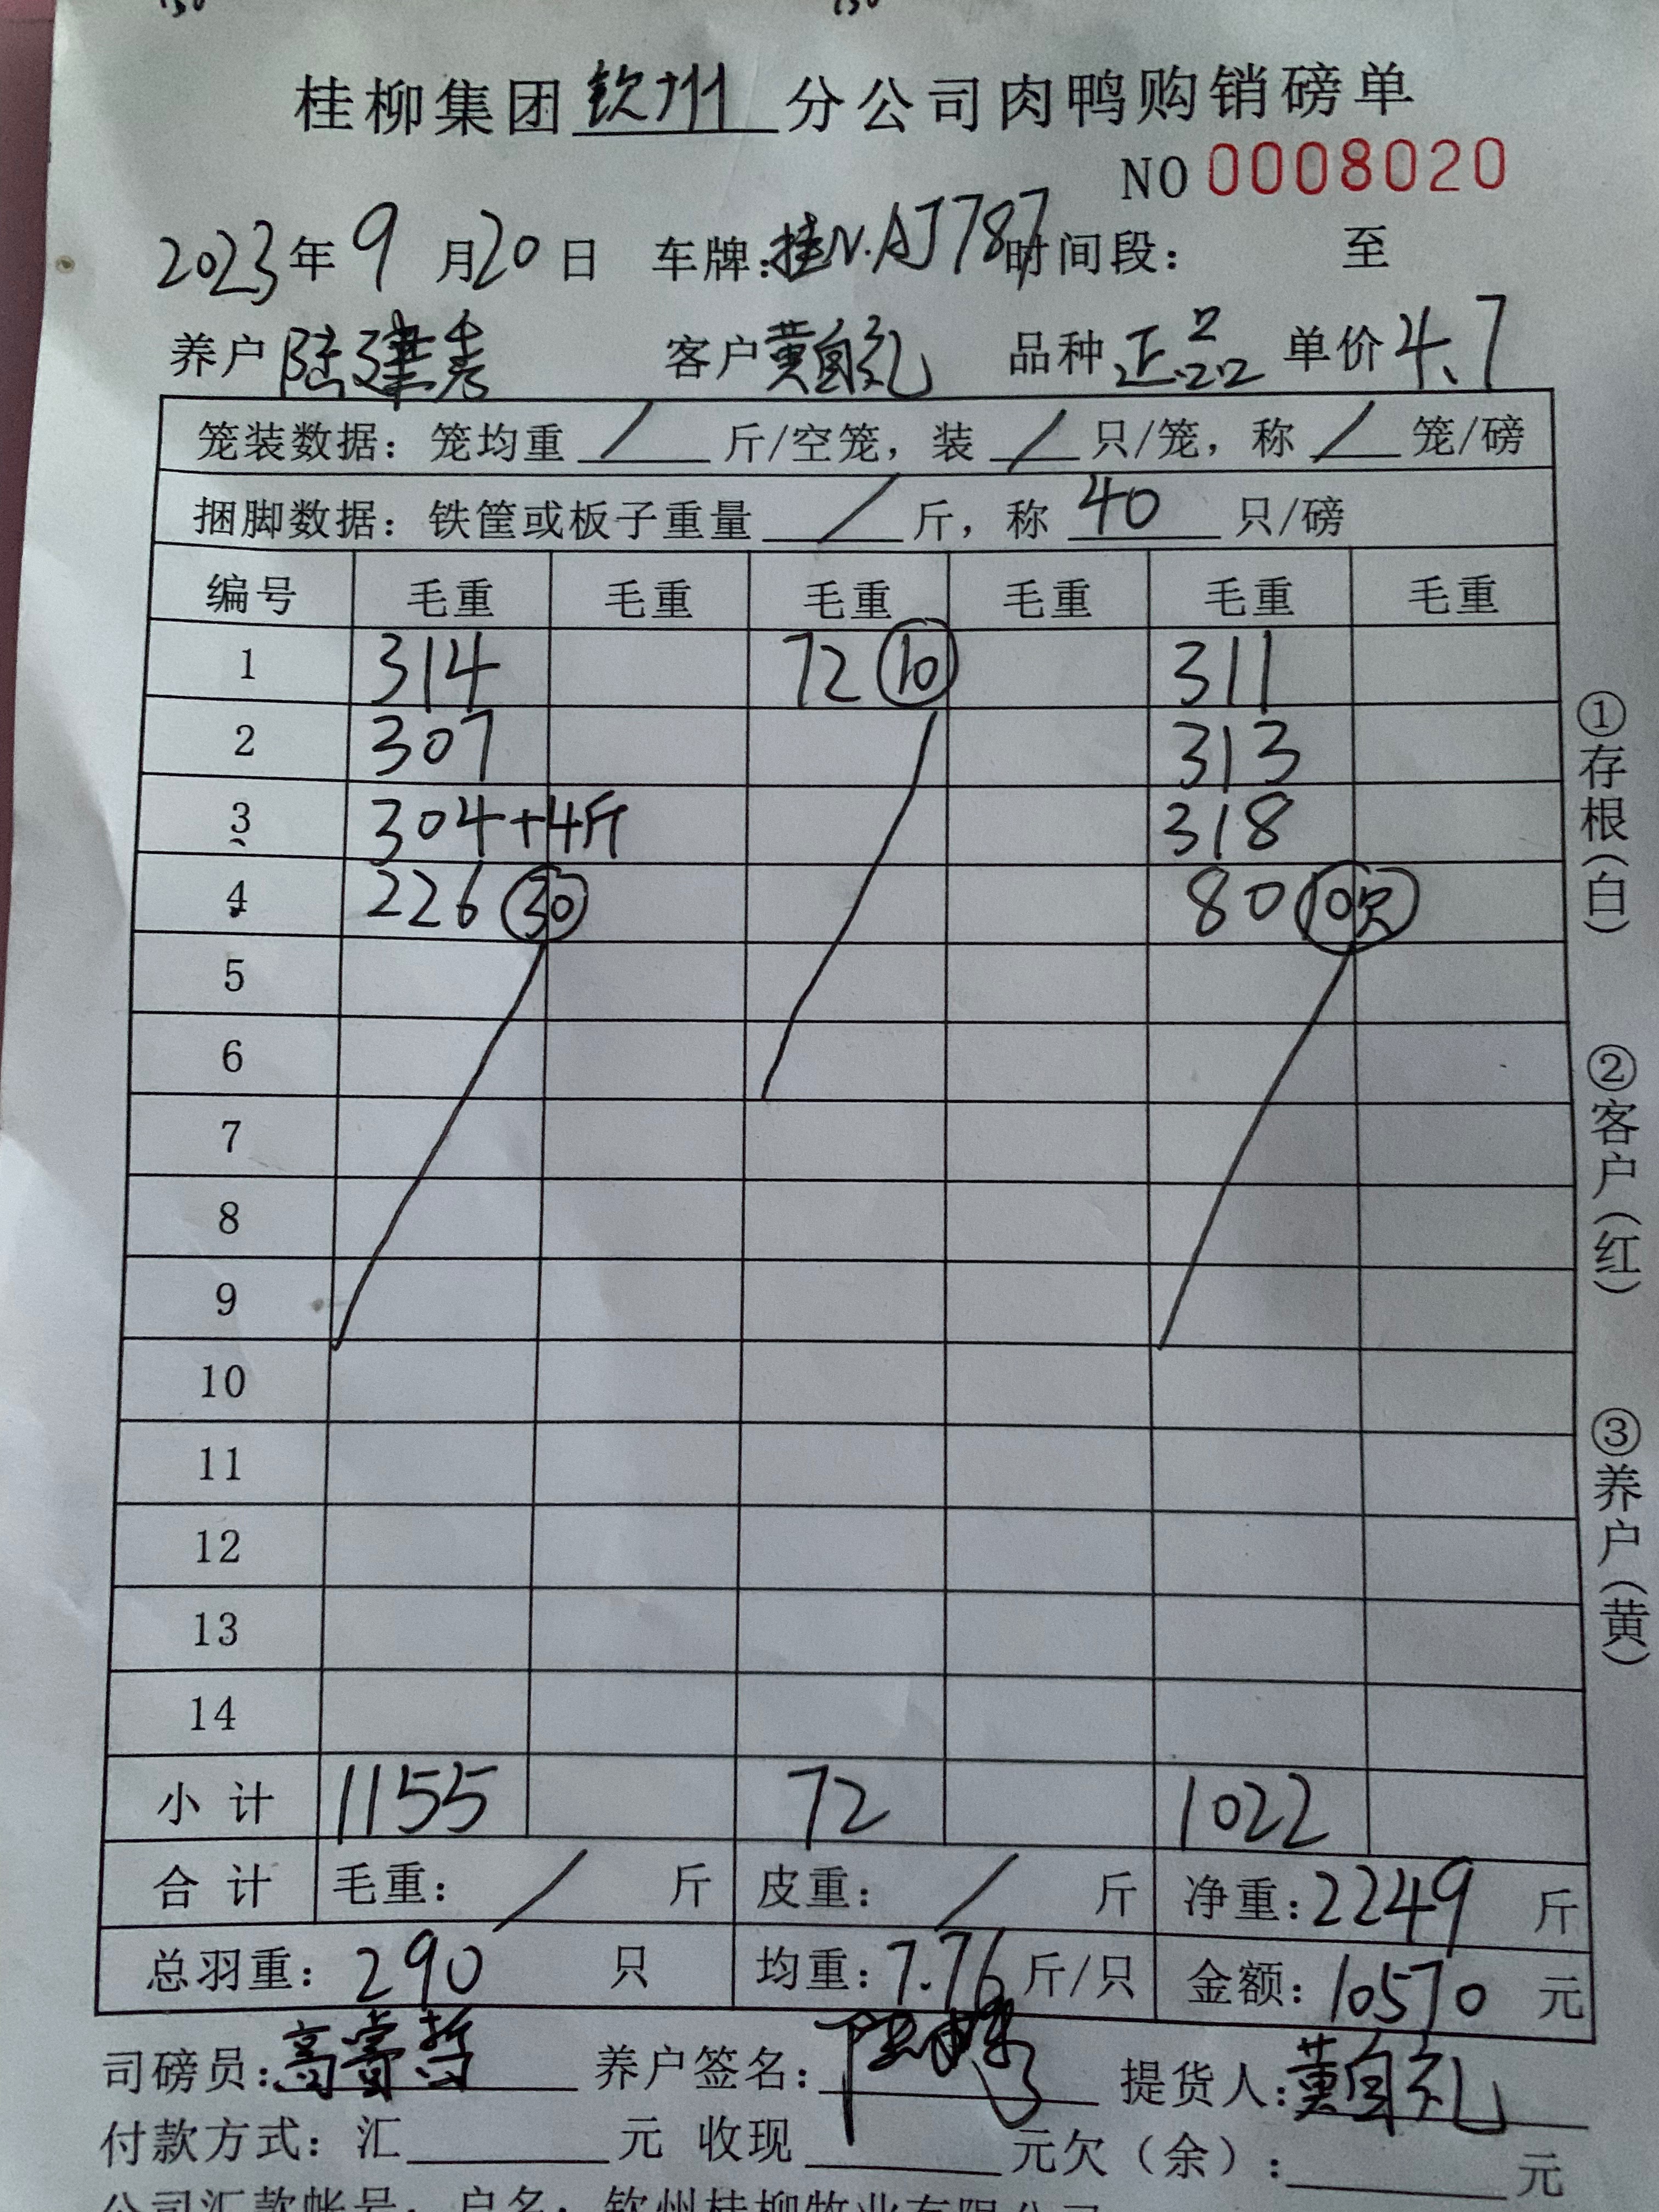 桂柳集团钦州分公司肉鸭购销磅单
NO 0008020
2023年9月20日 车牌:桂N.AJ787 时间段: 至
养户 陆建秀 客户 黄自礼 品种 正品 单价 4.7
笼装数据: 笼均重 / 斤/空笼, 装 / 只/笼, 称 / 笼/磅
捆脚数据: 铁筐或板子重量 / 斤, 称 40 只/磅
编号 毛重 毛重 毛重 毛重 毛重 毛重
1 314 72 ⑩ 311
2 307 313
3 304+4斤 318
4 226 ㉚ 80 10只
5
6
7
8
9
10
11
12
13
14
小计 1155 72 1022
合计 毛重: / 斤 皮重: / 斤 净重: 2249 斤
总羽重: 290 只 均重: 7.76 斤/只 金额: 10570 元
司磅员: 养户签名: 提货人: 黄自礼
付款方式: 汇 元 收现 元 欠(余): 元
公司汇款帐号: 户名: 钦州桂柳牧业有限公司
①存根(白)
②客户(红)
③养户(黄)